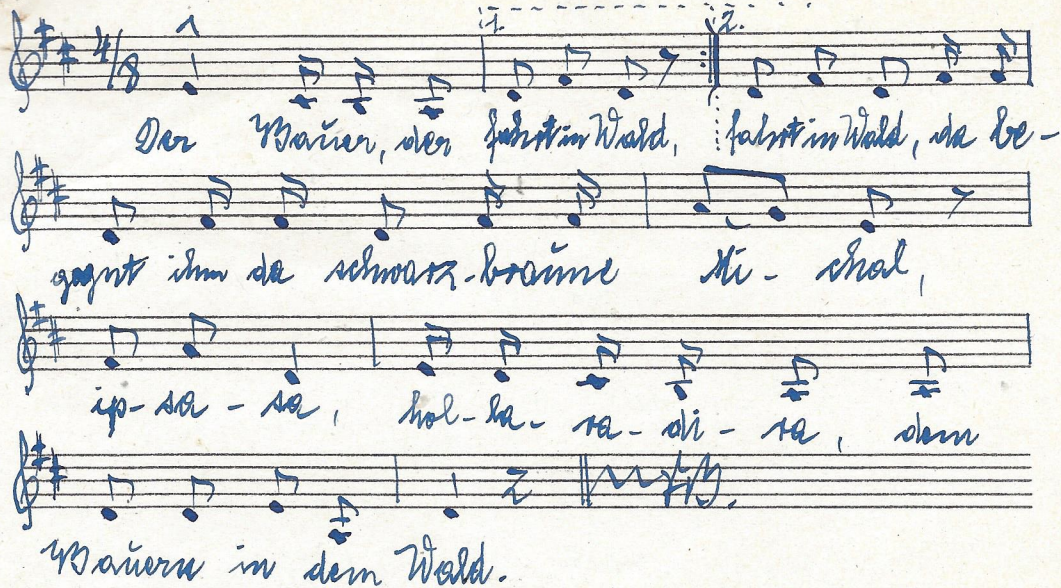 4/8 1. 2.
Der Bauer, der fahrt in Wald, fahrt in Wald, da be-
gegnt ihm da schwarz-braune Mi - chal,
ip-sa - sa, hol-la- ra- di - ra, dem
Bauern in dem Wald.